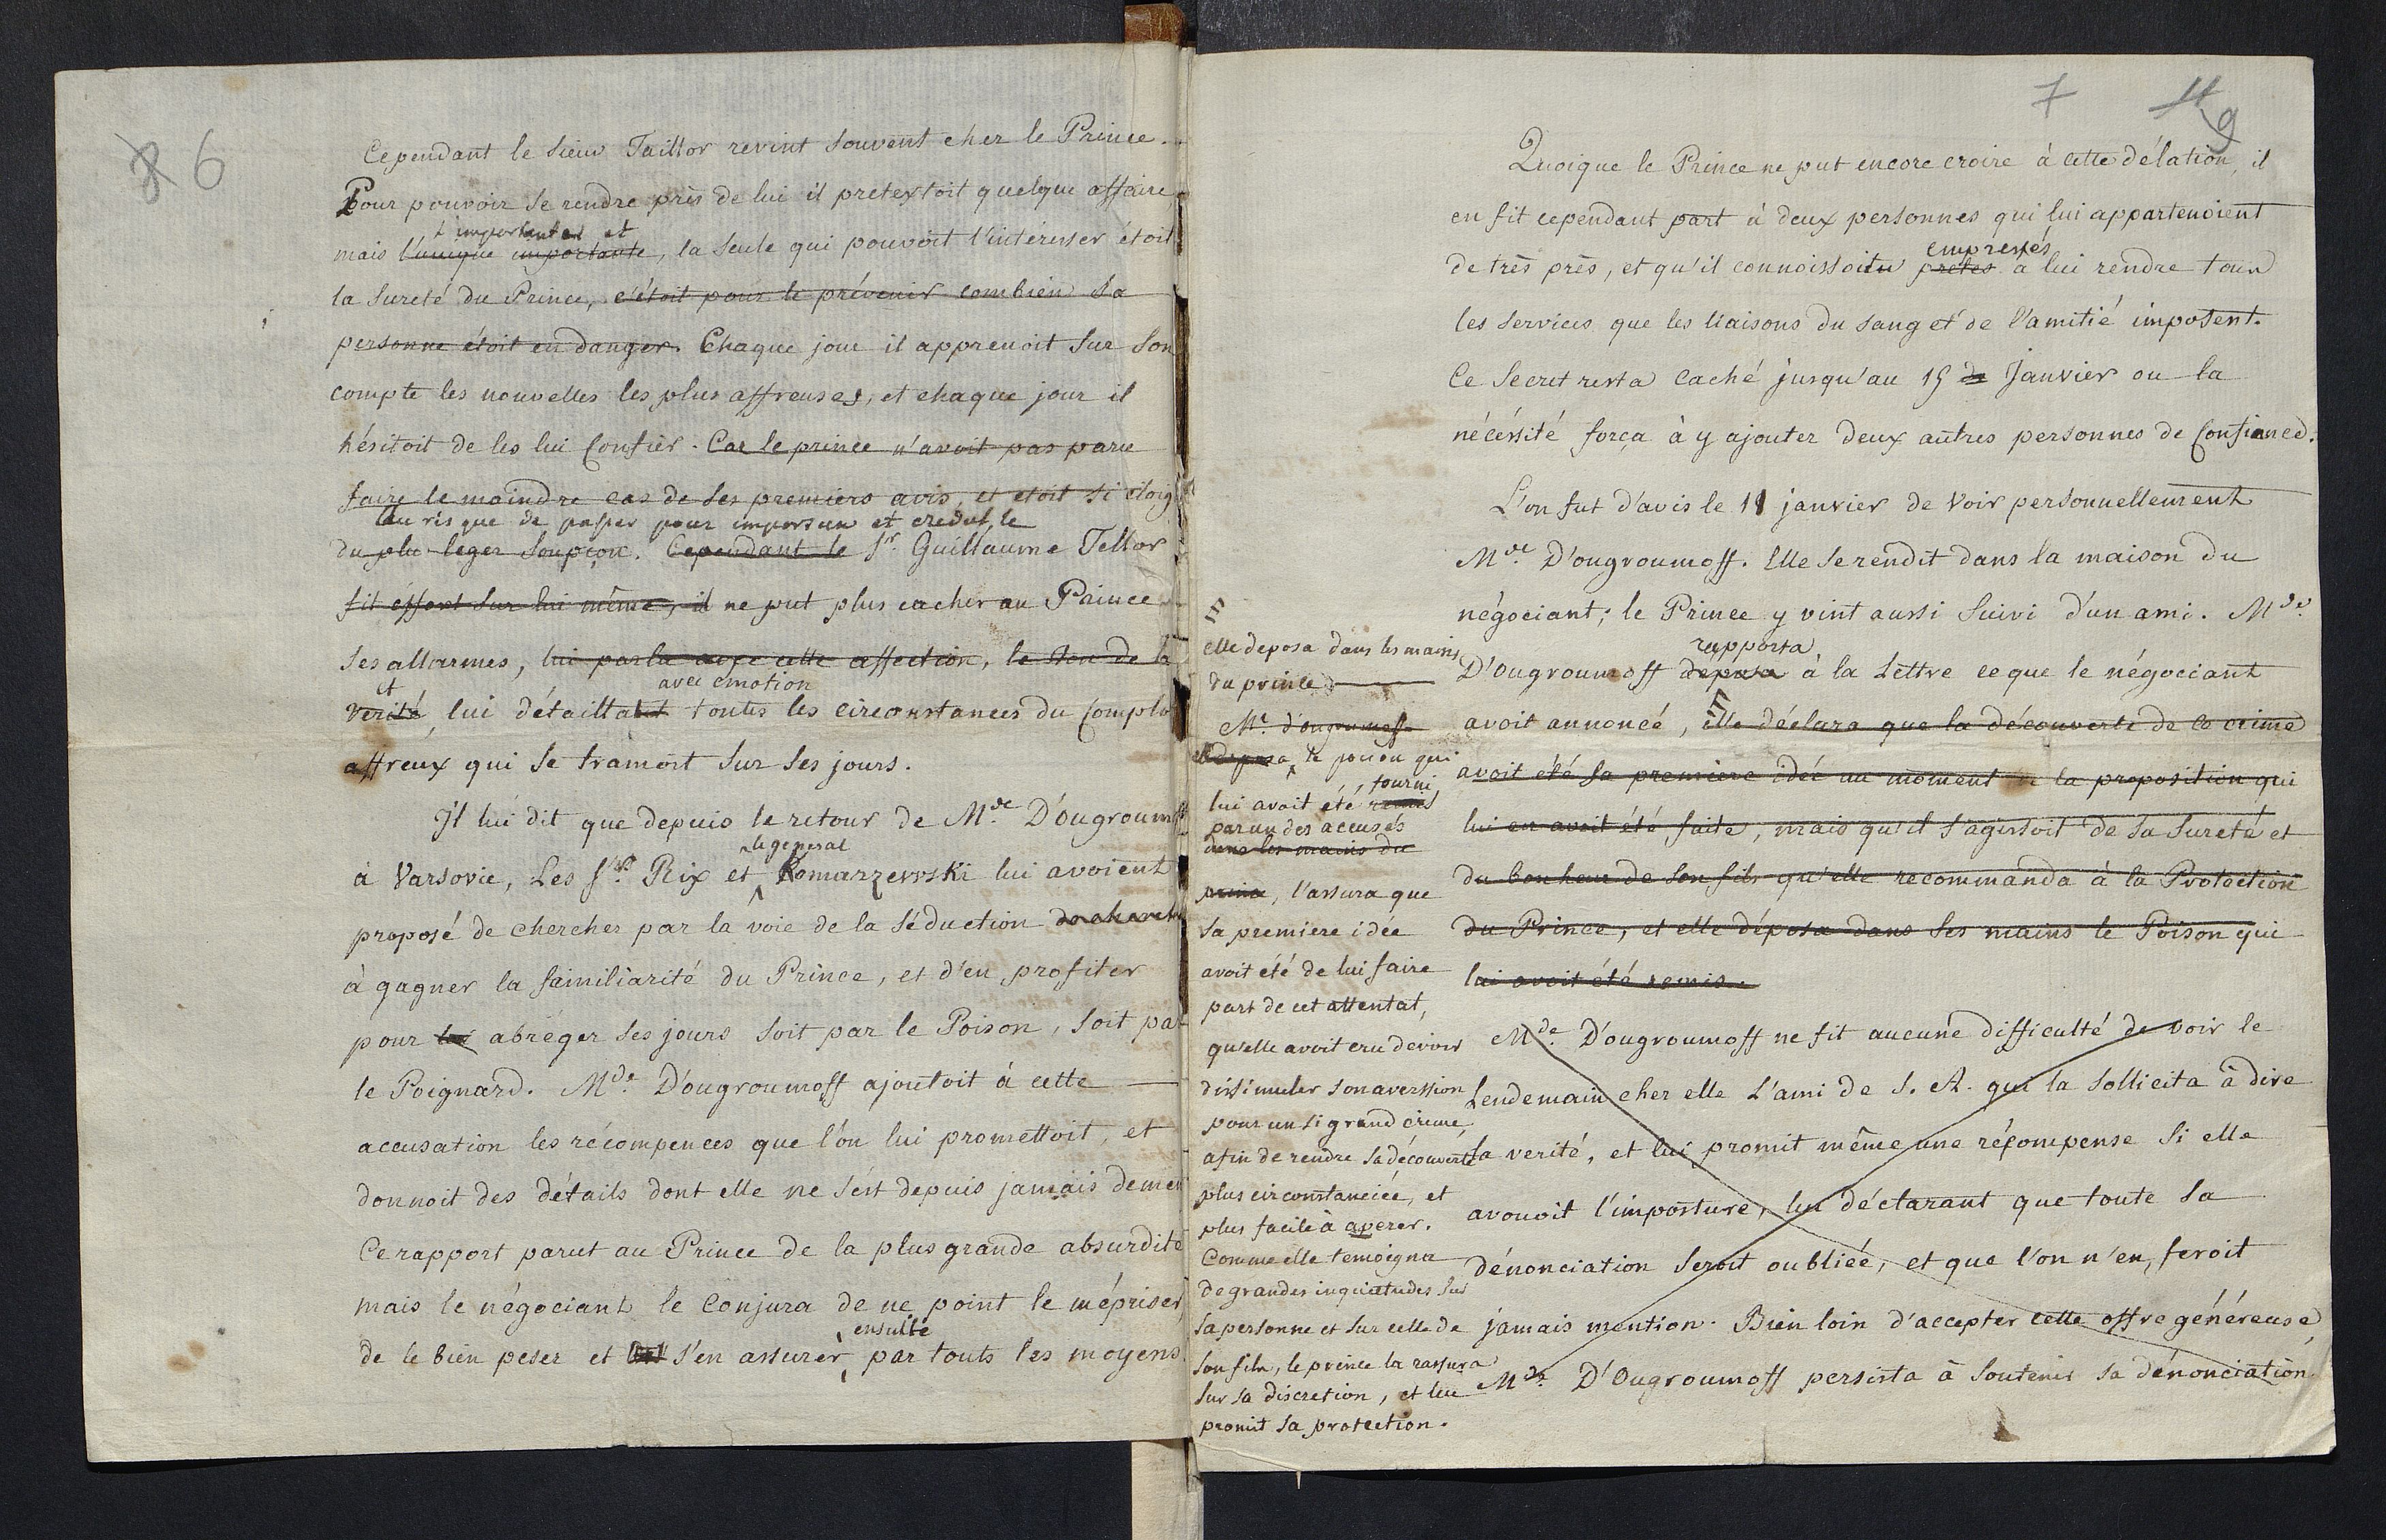 6
Cependant le Sieur Taillor revint souvent chez le Prince.
Pour pouvoir se rendre près de lui il pretextoit quelque affaire
l'importantes et
mais l'unique importante, la seule qui pouvoit l'intéresser étoit
la sureté du Prince, c'étoit pour le prévenir combien sa
personne étoit en danger. Chaque jour il apprenoit sur son
compte les nouvelles les plus affreuses, et chaque jour il
hésitoit de les lui Confier. Car le prince n'avoit pas paru
faire le moindre cas de ses premiers avis, et etoit si eloig
Au risque de passer pour importun et credul, le
du plu leger soupçon. Cependant le Sr. Guillaume Tellor
fit éffort sur lui même, il ne put plus cacher au Prince
Ses allarmes, lui parla avec cette affection, le ton de la
et avec émotion
verité, lui détailla toutes les circonstances du Complo
affreux qui se tramoit sur ses jours.
Il lui dit que depuis le retour de Mde. D'ougroumoff
le general
à Varsovie, Les Srs. Rix et Komarzewski lui avoient
proposé de chercher par la voie de la séduction
à gagner la familiarité du Prince, et d'en profiter
pour abréger ses jours soit par le Poison, soit par
le Poignard. Mde. D'ougroumoff ajoutoit à cette
accusation les récompences que l'on lui promettoit, et
donnoit des détails dont elle ne s'est depuis jamais demen
Ce rapport parut au Prince de la plus grande absurdité
mais le négociant le Conjura de ne point le mépriser,
ensuite
de le bien peser et s'en assurer, par touts les moyens.
7 9
Quoique le Prince ne put encore croire à cette délation, il
en fit cependant part à deux personnes qui lui appartenoient
empressés
de très près, et qu'il connoissoit prêtes à lui rendre tous
les services que les liaisons du sang et de l'amitié imposent.
Ce Secret resta Caché jusqu'au 15 de Janvier ou la
nécéssité força à y ajouter deux autres personnes de Confiance.
L'on fut d'avis le 11 janvier de Voir personnellement
Mde. D'ougroumoff. Elle se rendit dans la maison du
négociant; le Prince y vint aussi suivi d'un ami. Mde.
rapporta
D'Ougroumoff déposa à la Lettre ce que le négociant
avoit annoncé, elle déclara que la découverte de ce crime
avoit été sa premiere idée au moment de la proposition qui
lui en avoit été faite, mais qu'il s'agissoit de sa sureté et
du bonheur de son fils qu'elle recommanda à la Protection
du Prince, et elle déposa dans ses mains le Poison qui
lui avoit été remis.
Mde. D'ougroumoff ne fit aucune difficulté de voir le
Lendemain chez elle L'ami de S. A. qui la sollicita à dire
la verité, et lui promit même une récompense si elle
avouoit l'imposture, lui déclarant que toute sa
dénonciation seroit oubliée, et que l'on n'en feroit
jamais mention. Bien loin d'accepter cette offre généreuse,
Mde. D'Ougroumoff persista à soutenir sa dénonciation.
elle deposa dans les mains
du prince
Me. d'ougrumoff
deposa, le poison qui
fourni
lui avoit été remis
par un des accusés
dans les mains du
prince, l'assura que
sa premiere idée
avoit été de lui faire
part de cet attentat,
qu'elle avoit cru devoir
dissimuler son aversion
pour un si grand crime,
afin de rendre sa découverte
plus circonstanciée, et
plus facile à aperer.
Comme elle temoigna
de grandes inquietudes sur
sa personne et sur celle de
son fils, le prince la rassura
sur sa discretion, et lui
promit sa protection.